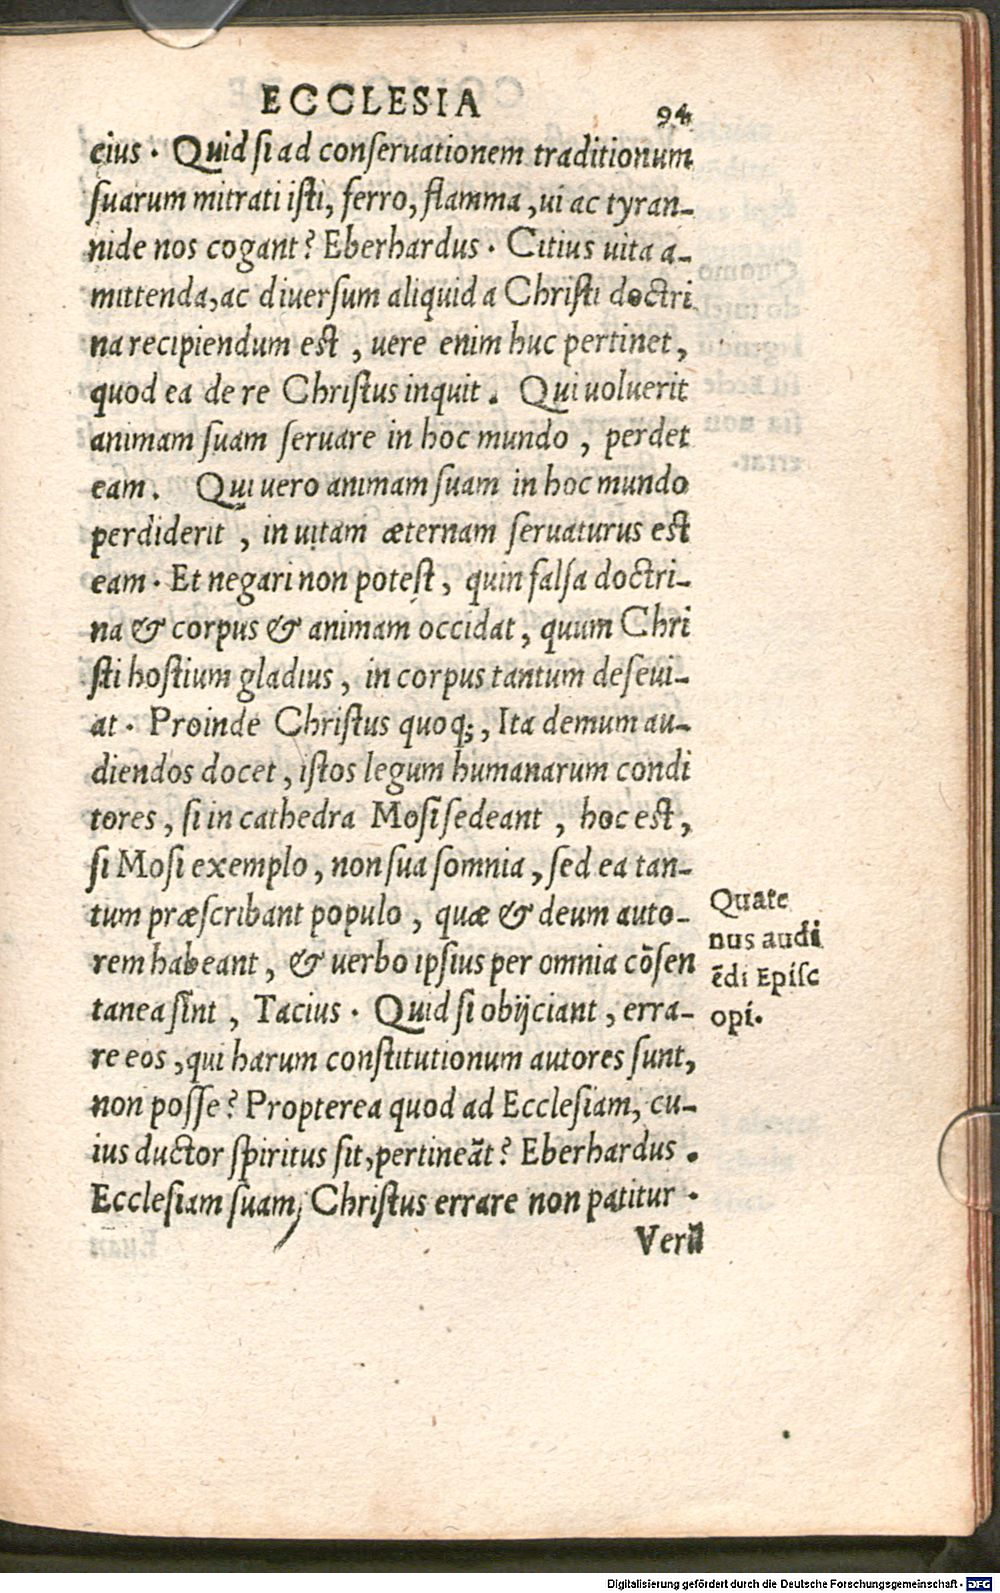 ECCLESIA 94
eius. Quid si ad conſeruationem traditionum
ſuarum mitrati iſti, ferro, flamma, ui ac tyran-
nide nos cogant? Eberhardus. Citius uita a-
mittenda, ac diuerſum aliquid a Chriſti doctri
na recipiendum eſt, uere enim huc pertinet,
quod ea de re Chriſtus inquit. Qui uoluerit
animam ſuam ſeruare in hoc mundo, perdet
eam. Qui uero animam ſuam in hoc mundo
perdiderit, in uitam æternam ſeruaturus eſt
eam. Et negari non poteſt, quin falſa doctri-
na & corpus & animam occidat, quum Chri
ſti hoſtium gladius, in corpus tantum deſeui-
at. Proinde Chriſtus quoq;, Ita demum au-
diendos docet, iſtos legum humanarum condi
tores, ſi in cathedra Moſi ſedeant, hoc eſt,
ſi Moſi exemplo, non ſua ſomnia, ſed ea tan-
tum præſcribant populo, quæ & deum auto-
rem habeant, & uerbo ipſius per omnia cōſen
tanea ſint, Tacius. Quid ſi obijciant, erra-
re eos, qui harum conſtitutionum autores ſunt,
non poſſe? Propterea quod ad Eccleſiam, cu-
ius ductor ſpiritus ſit, pertineāt? Eberhardus.
Eccleſiam ſuam, Chriſtus errare non patitur.
Verū
Quate
nus audi
ēdi Epiſc
opi.
Digitalisierung gefördert durch die Deutsche Forschungsgemeinschaft - DFG